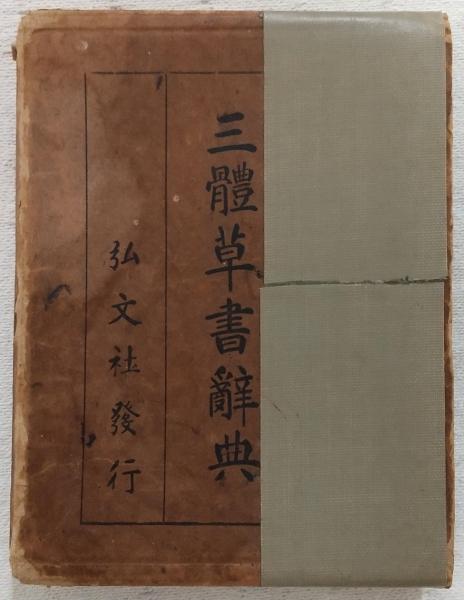 三體草書辭典
弘文社發行